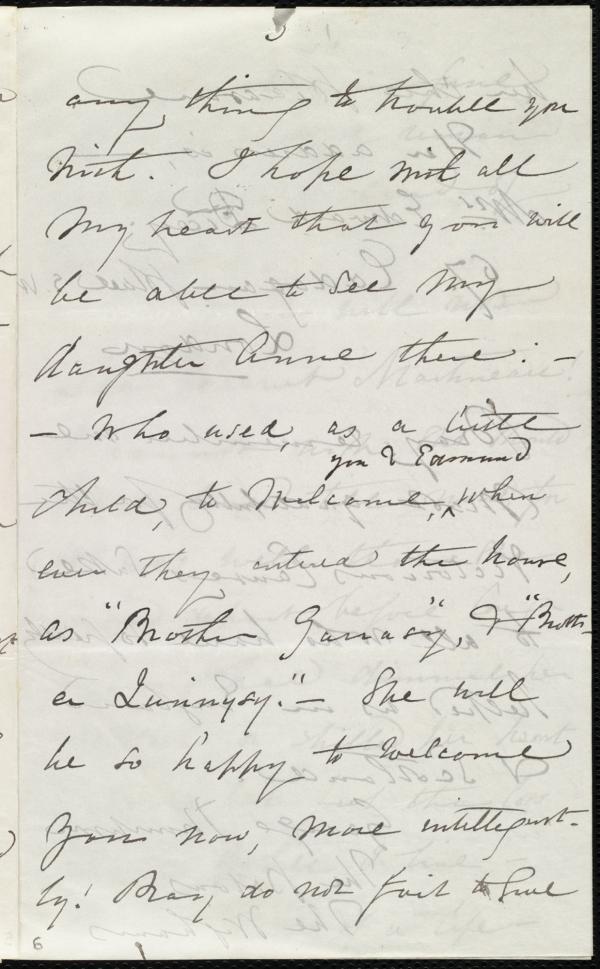 5
any thing to trouble you
with. I hope with all
my heart that you will
be able to see my
daughter Anne there: —
— Who used, as a little
you & Edmund
child, to welcome, ^ when
ever they entered the house,
as "Brother Garrasy", & "Broth-
er Quinnysy." — She will
be so happy to welcome
you now, more intelligent-
ly! Pray, do not fail to give
6